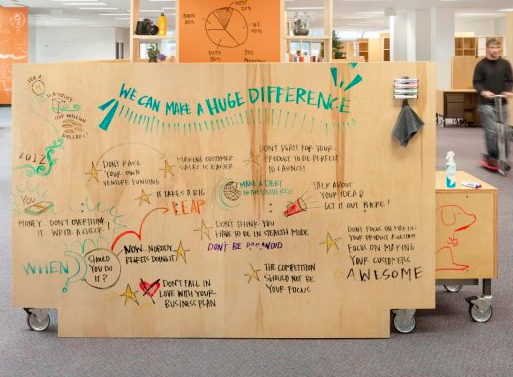 WE CAN MAKE A HUGE DIFFERENCE
2012
YOU
MONEY
DON'T OVERTHINK
IT. WRITE A CHECK
WHEN?
SHOULD
YOU DO
IT?
NOW. NOBODY
REGRETS DOING IT
DON'T RAISE
YOUR OWN
VENTURE FUNDING
MAKING CUSTOMER
SALES IS EASIER
IT TAKES A BIG
LEAP
DON'T WAIT FOR YOUR
PRODUCT TO BE PERFECT
TO LAUNCH!
MAKE A DENT
IN THE UNIVERSE!
TALK ABOUT
YOUR IDEA &
LET IT OUT
DON'T THINK YOU
HAVE TO BE IN STEALTH MODE
DON'T BE PARANOID
DON'T FALL IN
LOVE WITH YOUR
BUSINESS PLAN
THE COMPETITION
SHOULD NOT BE
YOUR FOCUS
DON'T FOCUS ON MAKING
YOUR PRODUCT AWESOME
FOCUS ON MAKING
YOUR CUSTOMERS
AWESOME